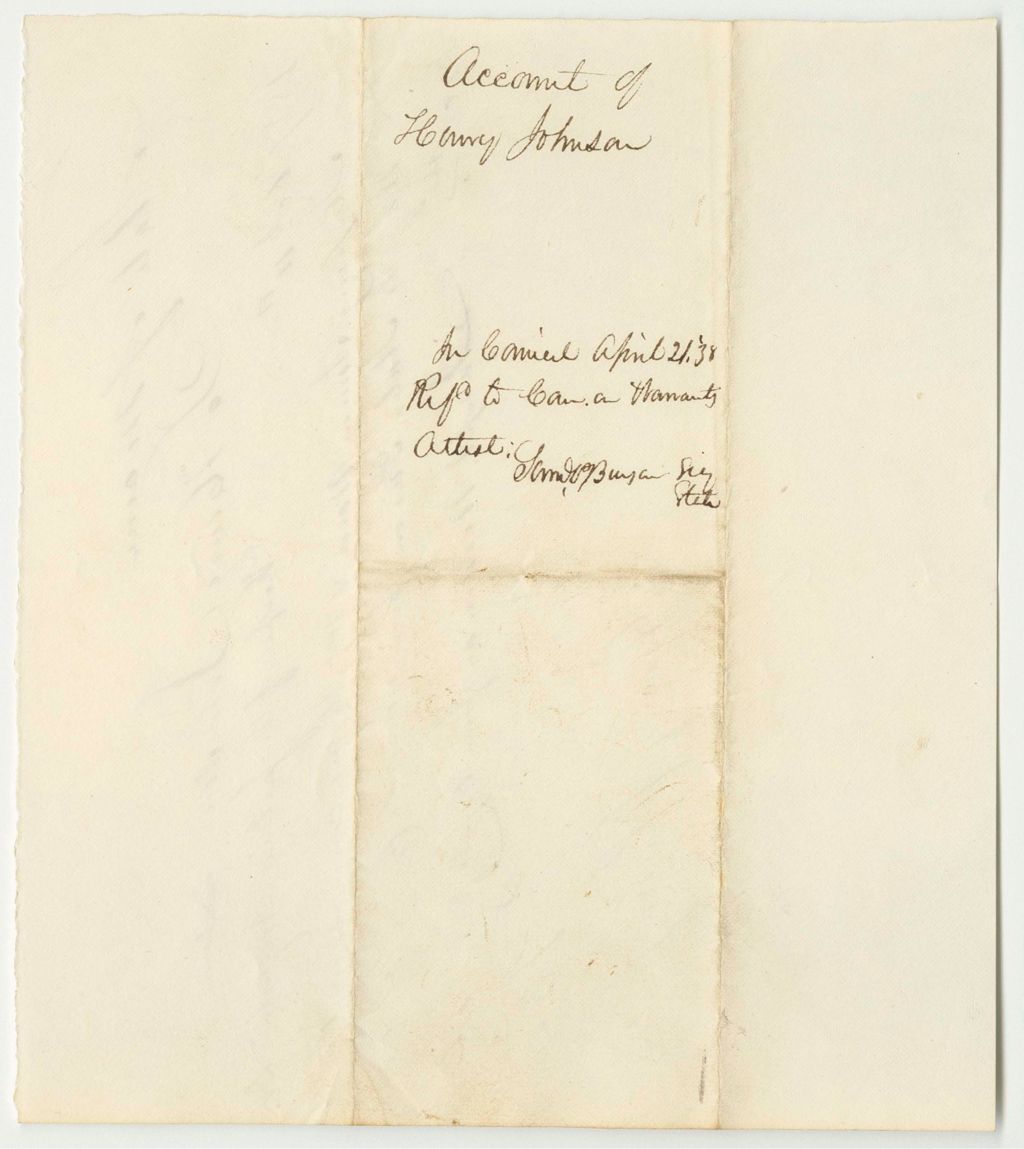 Account of
Henry Johnson
In Council April 21. '38
Refd to Com. on Warrants
Attest:
Saml P Benson Secy
State